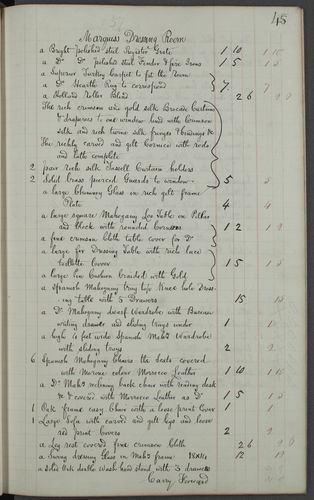 45
Marquess Dressing Room
a Bright polished steel Register Grate 1 10
a Do Do polished steel Fender & fire Irons 1 5
a Superior Turkey Carpet to fit the Room
a Do Hearth Rug to correspond 7
a Holland Roller Blind 2 6
The rich crimson and gold silk Brocade Curtains
& draperies to one window lined with Crimson
silk and rich twine silk fringes & bindings &c
The richly carved and gilt Cornice with rods
and lath complete
2 pair rich silk Tassell Curtain holders
2 Solid brass pierced Guards to window 5
a large Chimney Glass in rich gilt frame
Plate 4
a large square Mahogany Loo Table on Pillar
and block with rounded Corners 1 2
a fine crimson Cloth table cover for Do
a large Dressing Table with rich lace
toilette Cover 1 5
a large Pin Cushion braided with Gold
a Spanish Mahogany tray top Knee hole Dress-
ing table with 5 Drawers 15
a Do Mahogany dwarf Wardrobe with Bureau
writing drawer and sliding trays under 1
a high 6 feet wide Spanish Mahy Wardrobe
with sliding trays 2
6 Spanish Mahogany Chairs the Seats covered
with Marone colour Morrocco Leather 1 10
a Do Mahy reclining back chair with reading desk
& covered with Morrocco Leather as Do 1 5
1 Oak frame easy Chair with a loose print Cover 1
1 Large Sofa with carved and gilt legs and loose
red print Covers 2
a Leg rest covered fine crimson Cloth 2 6
a Swing dressing Glass in Mahy frame 18x14 12
a solid Oak double Wash hand stand with 3 drawers
Carry Forward